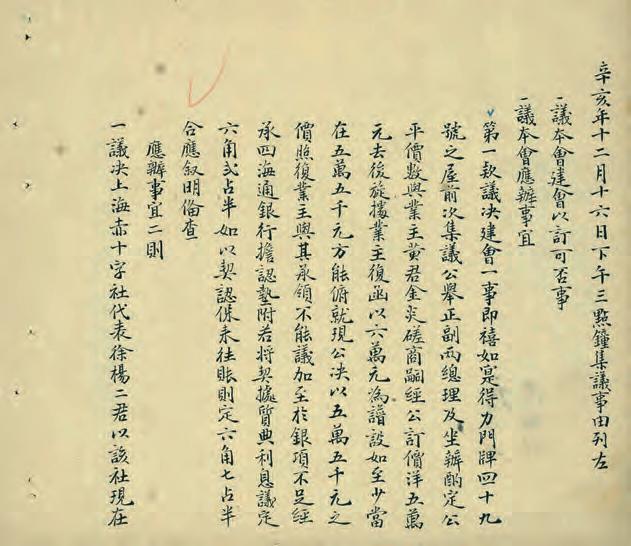 辛亥年十二月十六日下午三點鐘集議事由列左
一議本會建會以訂可否事
一議本會應辦事宜
第一款議决建會一事即禧如寔得力門牌四十九
號之屋前次集議公舉正副兩總理及坐辦酌定公
平價數與業主黄君金炎磋商嗣經公訂價洋五萬
元去後旋據業主復函以六萬元為譜設如至少當
在五萬五千元方能俯就現公决以五萬五千元之
價照復業主與其承領不能議加至於銀項不足經
承四海通銀行擔認墊附若將契據質典利息議定
六角弍占半如以契認保來往賬則定六角七占半
合應叙明備查
應辦事宜二則
一議决上海赤十字社代表徐楊二君以該社現在